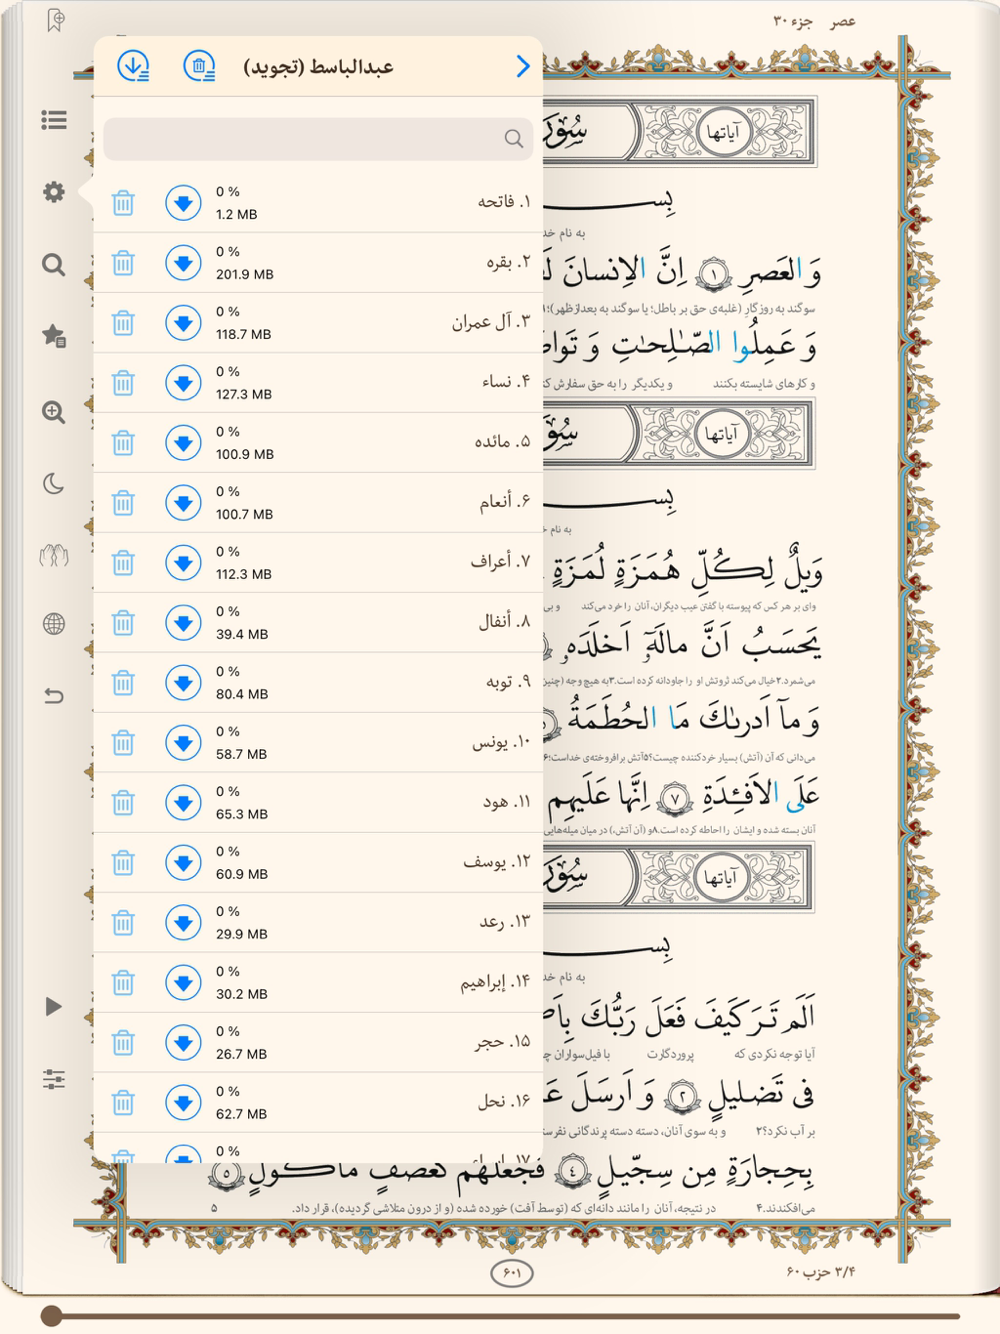 عصر جزء ۳۰
عبدالباسط (تجوید)
۱. فاتحه
0 %
1.2 MB
۲. بقره
0 %
201.9 MB
۳. آل عمران
0 %
118.7 MB
۴. نساء
0 %
127.3 MB
۵. مائده
0 %
100.9 MB
۶. أنعام
0 %
100.7 MB
۷. أعراف
0 %
112.3 MB
۸. أنفال
0 %
39.4 MB
۹. توبه
0 %
80.4 MB
۱۰. یونس
0 %
58.7 MB
۱۱. هود
0 %
65.3 MB
۱۲. یوسف
0 %
60.9 MB
۱۳. رعد
0 %
29.9 MB
۱۴. إبراهیم
0 %
30.2 MB
۱۵. حجر
0 %
26.7 MB
۱۶. نحل
0 %
62.7 MB
0 %
آیاتها
به نام
وَ العَصرِ ۱ اِنَّ الاِنسانَ
سوگند به روزگار (غلبه‌ی حق بر باطل؛ یا سوگند به بعدازظهر)؛۱
وَ عَمِلُوا الصّٰلِحٰتِ وَ
و کارهای شایسته بکنند و یکدیگر را به حق سفارش
آیاتها
به نام
وَیلٌ لِکُلِّ هُمَزَةٍ لُمَزَةٍ
وای بر هر کس که پیوسته با گفتن عیب دیگران، آنان را خرد می‌کند
یَحسَبُ اَنَّ مالَهٗٓ اَخلَدَهٗ
می‌شمرد.۲خیال می‌کند ثروتش او را جاودانه کرده است.۳به هیچ وجه
وَ مآ اَدرىٰكَ مَا الحُطَمَةُ
می‌دانی که آن (آتش) بسیار خردکننده چیست؟۵آتش برافروخته‌ی خداست؛۶
عَلَى الاَفـِٔدَةِ ۷ اِنَّها عَلَیهِم
آنان بسته شده و ایشان را احاطه کرده است.۸و (آن آتش،) در میان
آیاتها
به نام
اَلَم تَرَ کَیفَ فَعَلَ رَبُّكَ
آیا توجه نکردی که پروردگارت با فیل‌سواران
فی تَضلیلٍ ۲ وَ اَرسَلَ
بر آب نکرد؟۲ و به سوی آنان، دسته دسته پرندگانی
بِحِجارَةٍ مِن سِجّیلٍ ۴ فَجَعَلَهُم کَعَصفٍ مَأکولٍ ۵
می‌افکندند.۴ در نتیجه، آنان را مانند دانه‌ای که (توسط آفت) خورده شده (و از درون متلاشی گردیده)، قرار داد. ۵
۳/۴ حزب ۶۰
۶۰۱